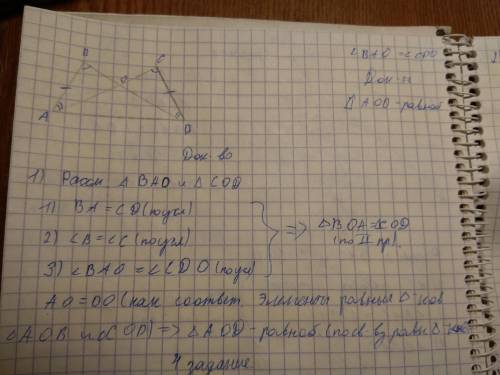 ∠BAO = ∠CDO
Док-ть
△AOD - равноб
B C
O
A D
Док-во
1) Рассм △ BAO и △ COD
1) BA = CD (по усл)
2) ∠B = ∠C (по усл)
3) ∠BAO = ∠CDO (по усл)
=> △BOA = △COD
(по II пр).
AO = OD (как соответ. элементы равных △ ков
△AOB и △COD) => △AOD - равноб (по св-ву равн △
4 задание